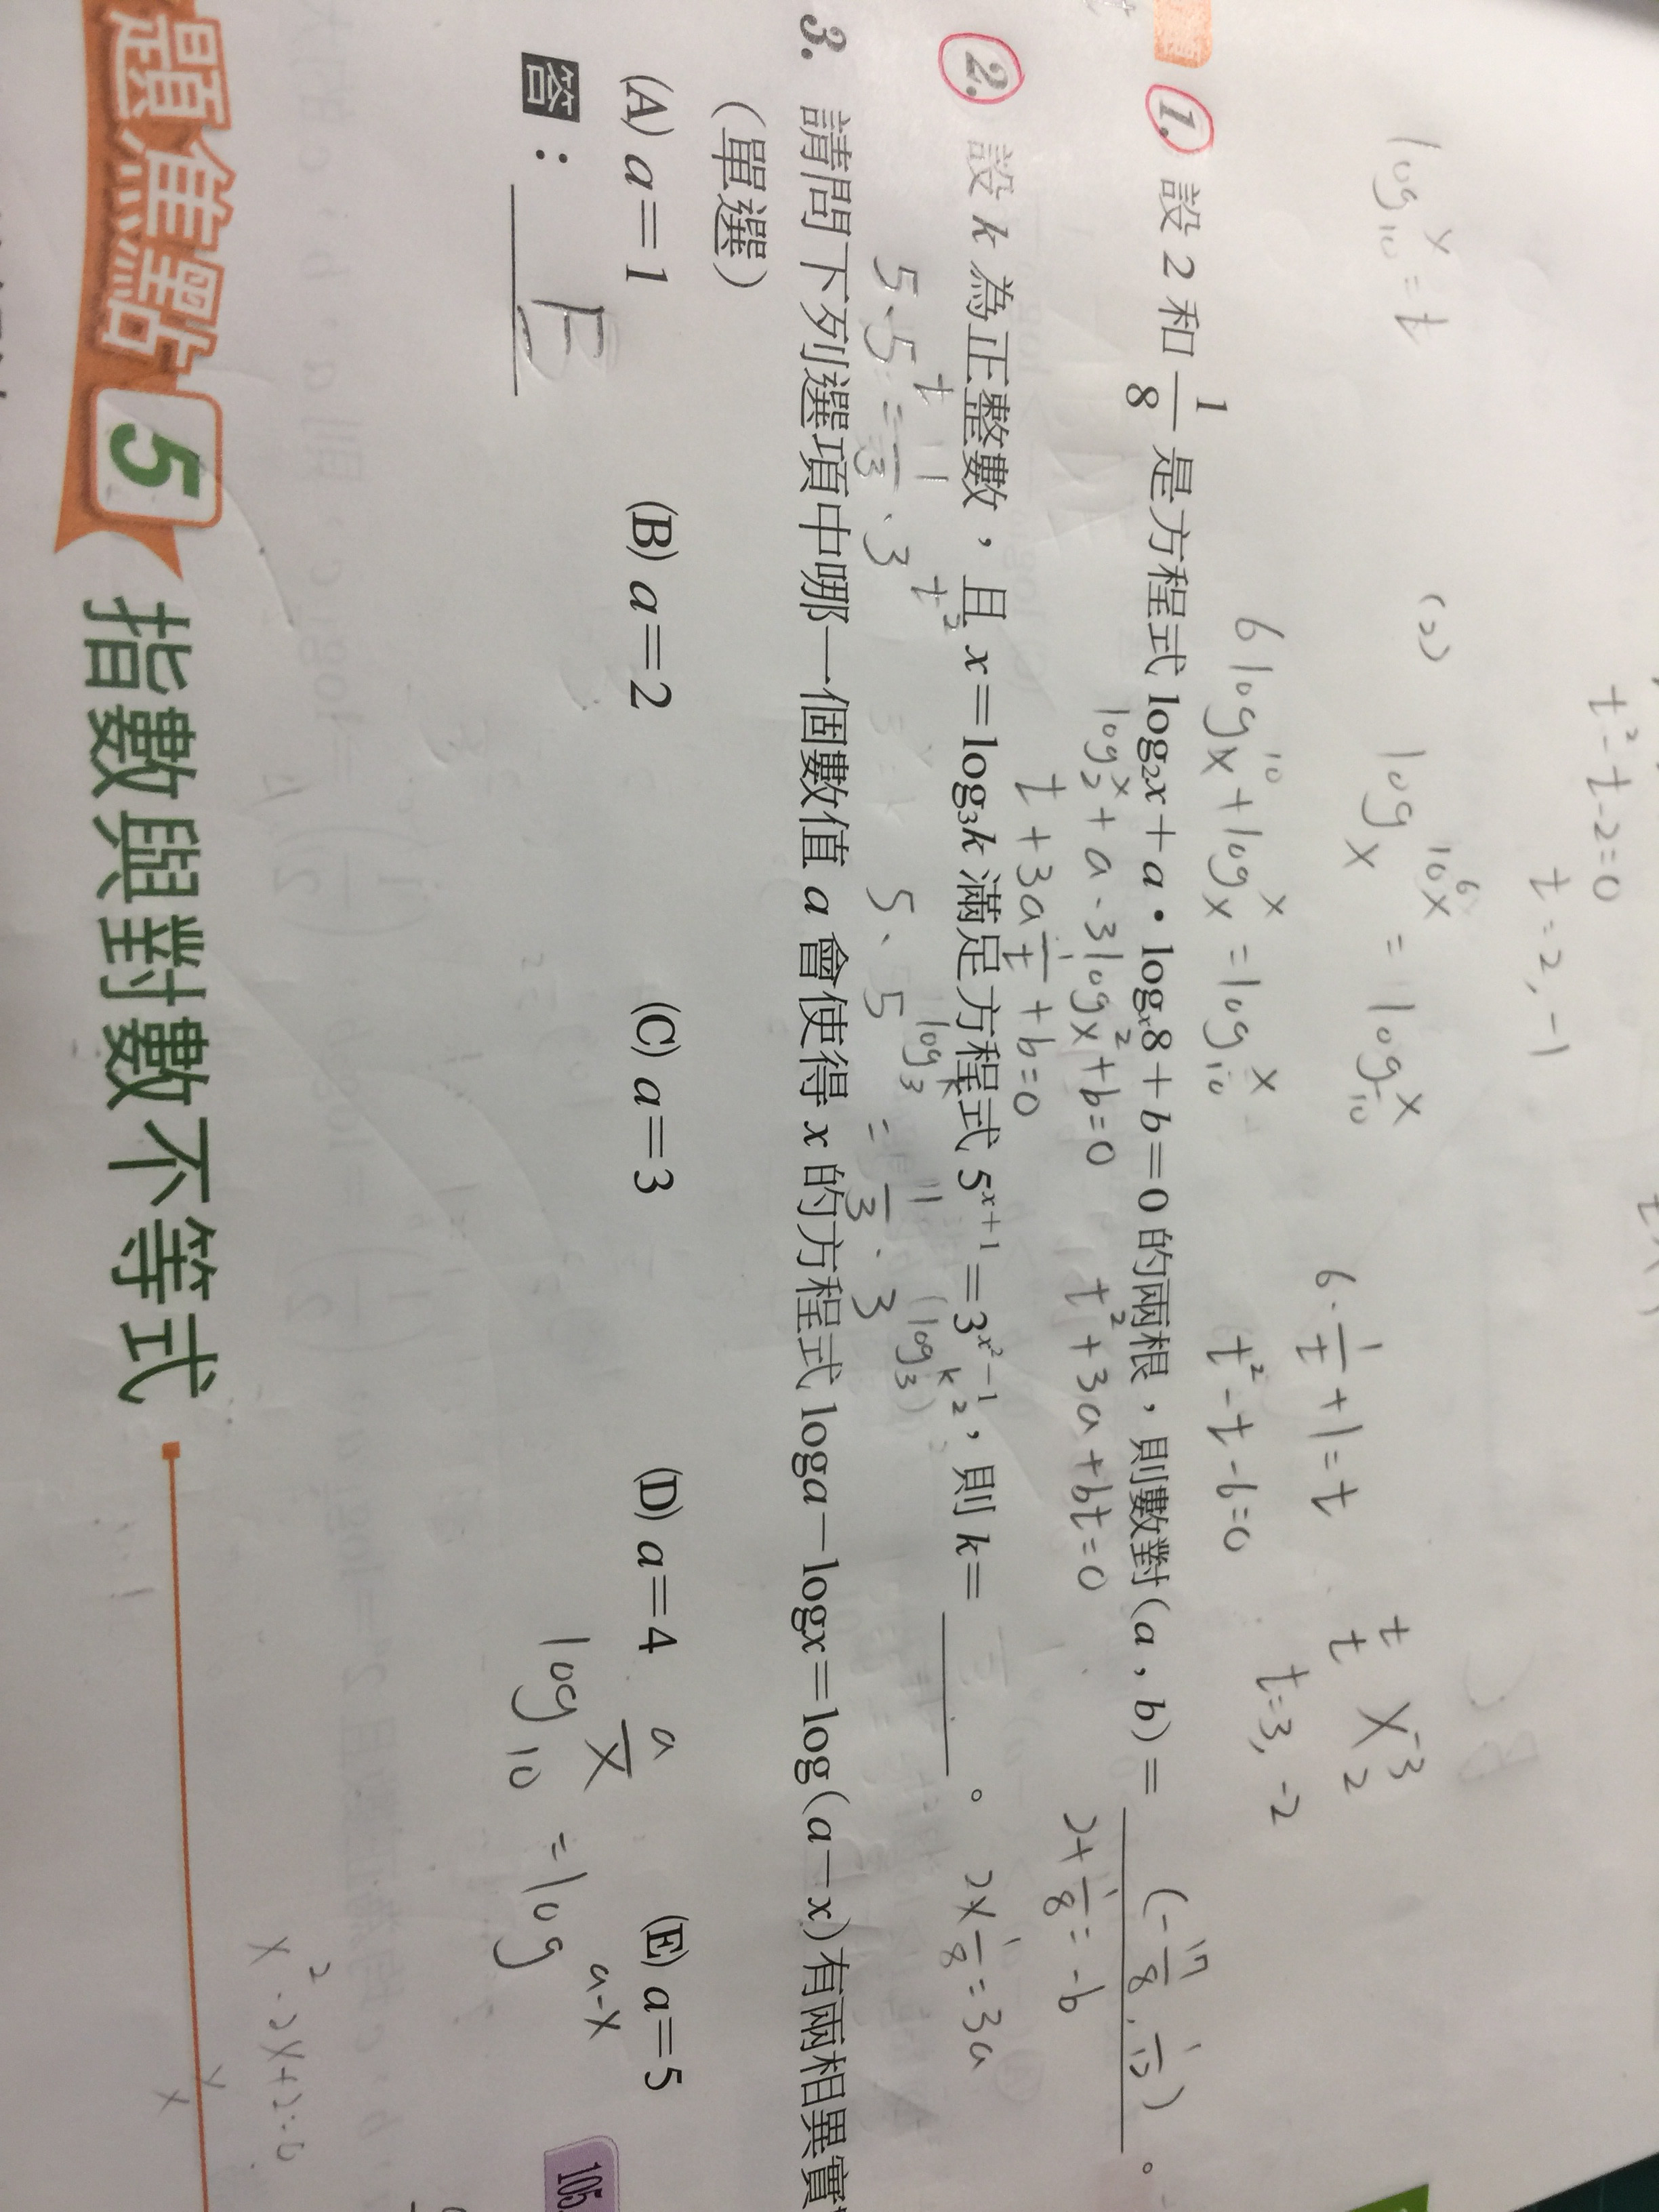 t²-t-2=0
t=2,-1
log₁₀x=t
(2)
logₓ10⁶x=log₁₀x
6·1/t+1=t
6logₓ10+logₓx=log₁₀x
t²-t-6=0
t=3,-2
1. 設 2 和 1/8 是方程式 log₂x+a·logₓ8+b=0 的兩根,則數對(a,b)= (-17/8, 1/12) 。
log₂x+a·3logₓ2+b=0
t²+3a+bt=0
2+1/8=-b
t+3a 1/t+b=0
2. 設 k 為正整數,且 x=log₃k 滿足方程式 5ˣ⁺¹=3^(x²-1),則 k=______。
2×1/8=3a
5·5^t=1/3·3^(t²)
5·5^(log₃k)=1/3·3^((log₃k)²)
3. 請問下列選項中哪一個數值 a 會使得 x 的方程式 loga-logx=log(a-x)有兩相異實
(單選)
(A) a=1 (B) a=2 (C) a=3 (D) a=4 (E) a=5
答: E
log₁₀ a/x=log a-x
105.
題焦點 5 指數與對數不等式